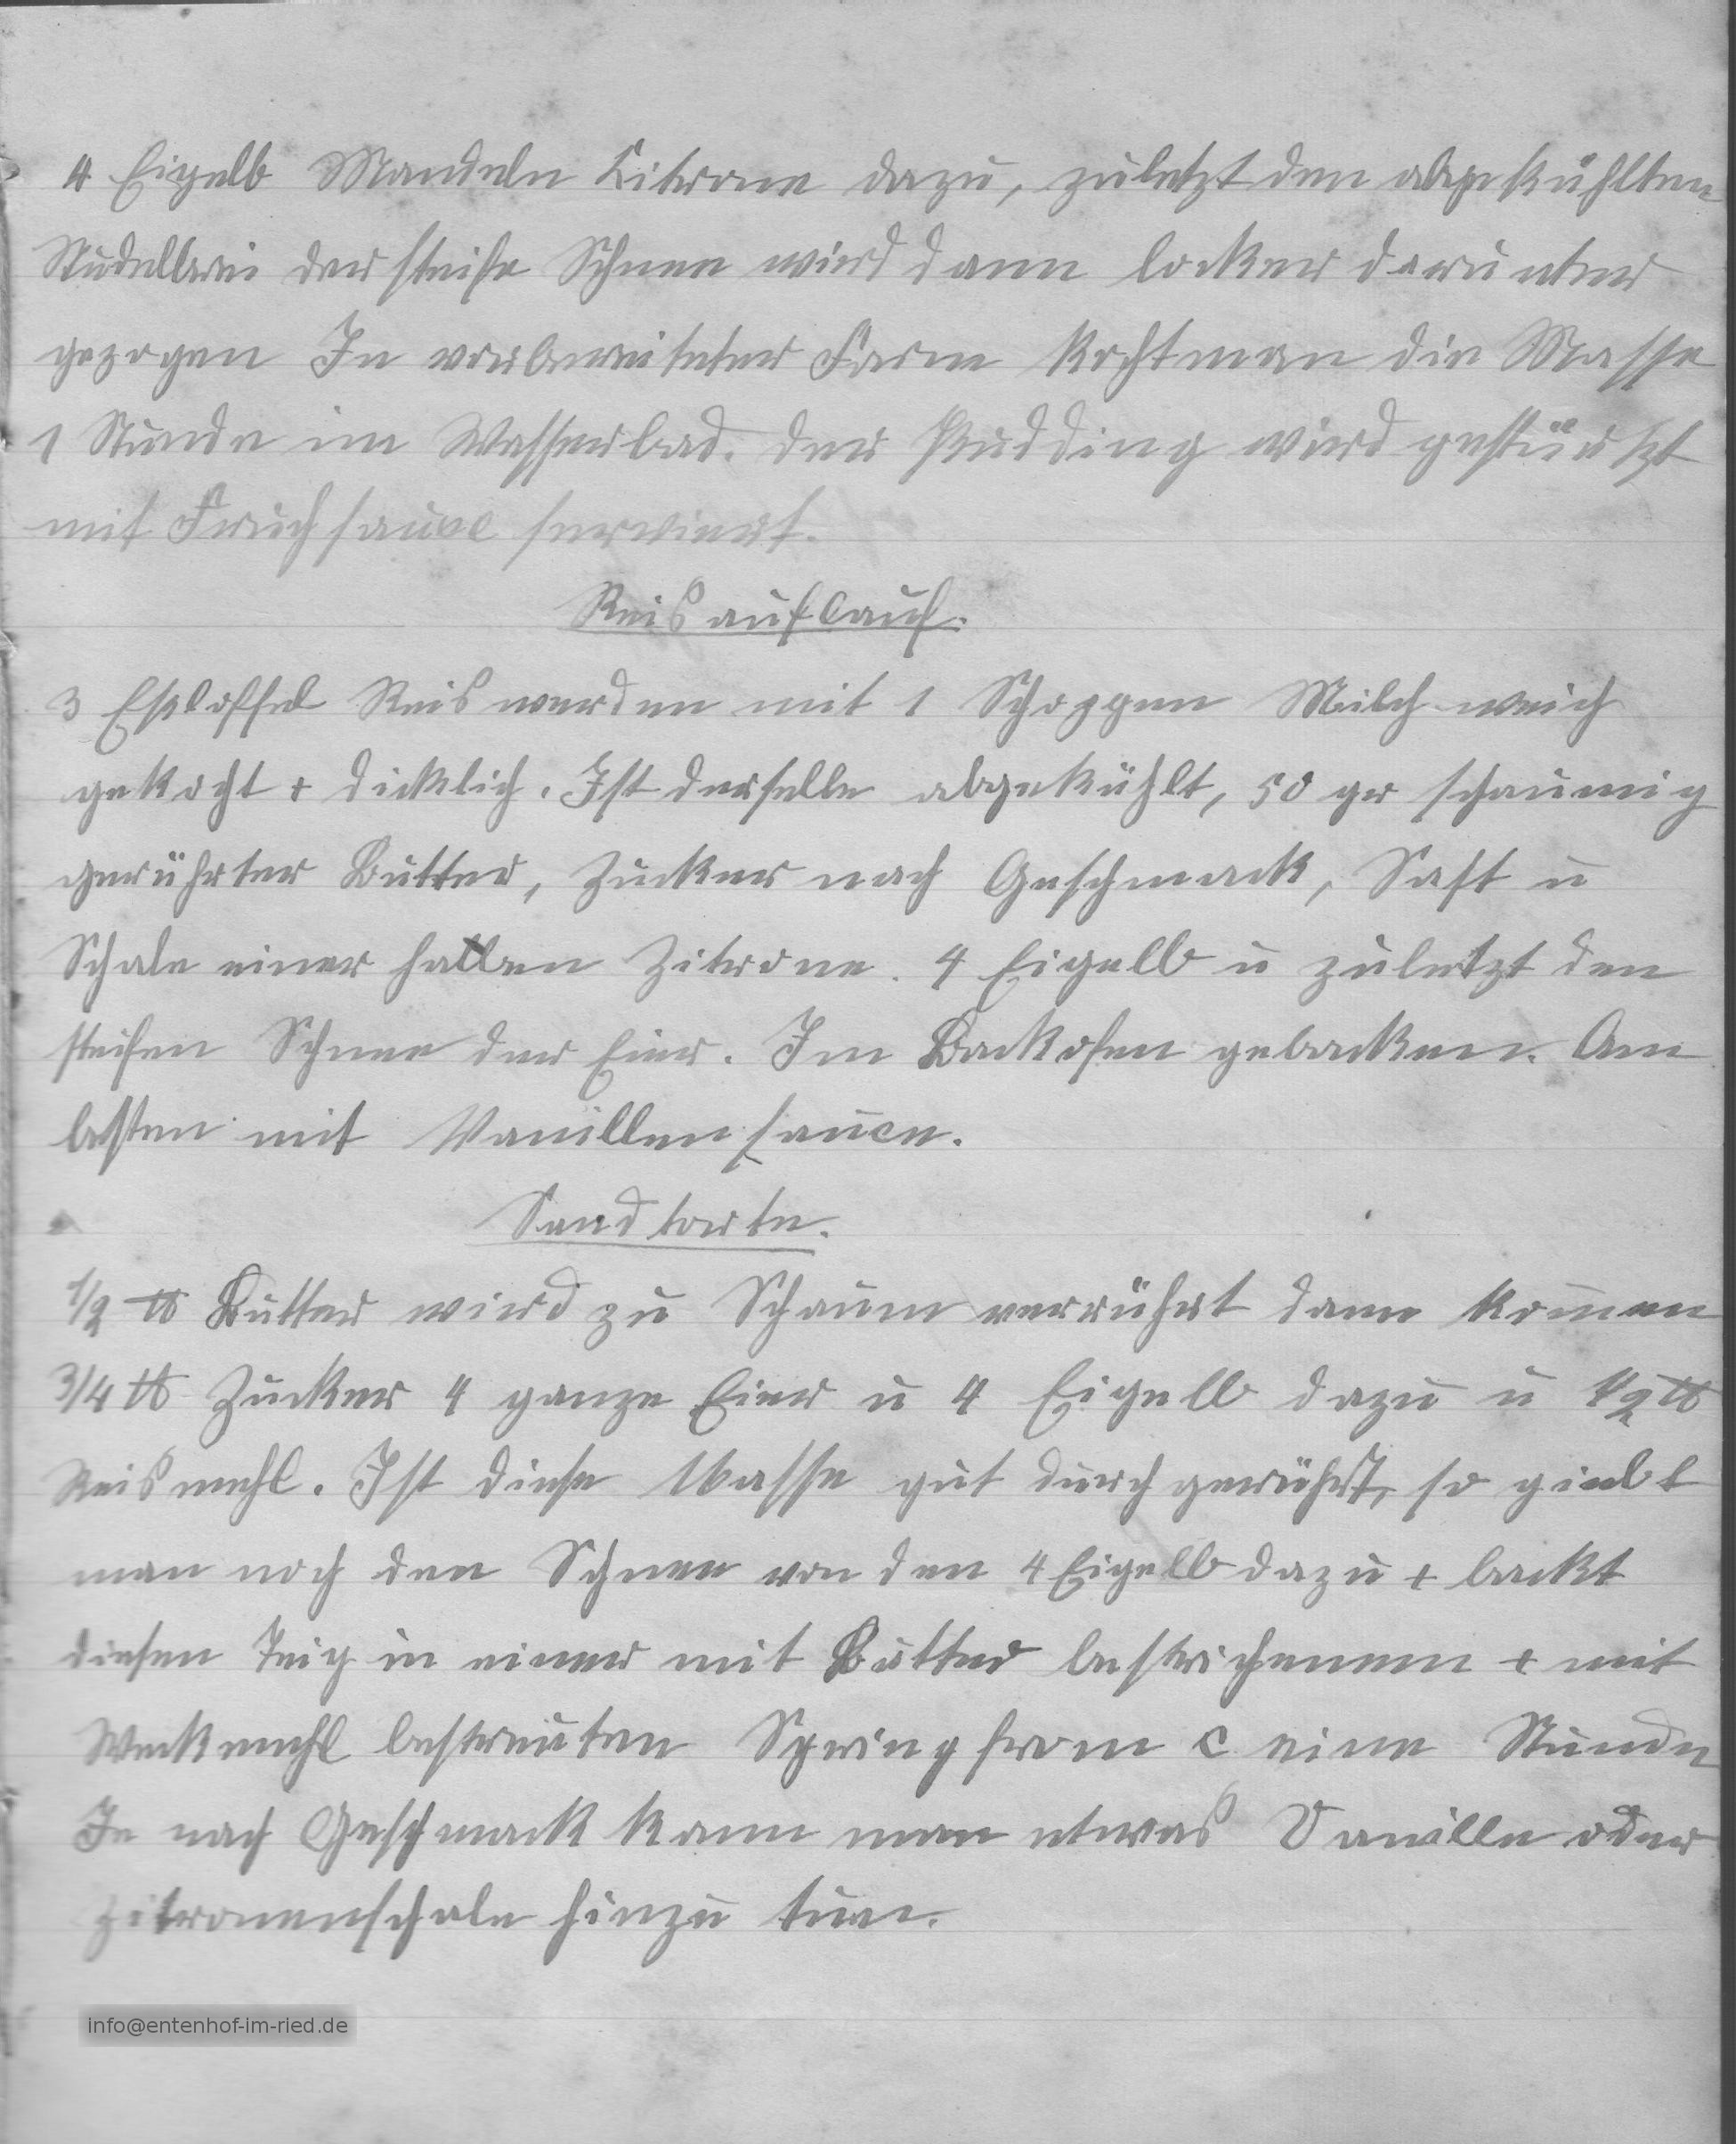 4 Eigelb Mandeln Citrone dazu, zuletzt den abgekühlten
Nudelbrei der steife Schnee wird dann locker darunter
gezogen In vorbereiteter Form kocht man die Masse
1 Stunde im Wasserbad. Der Pudding wird gestürtzt
mit Fruchsauce serviert.
Reisauflauf.
3 Eßloffel Reis werden mit 1 Schoppen Milch weich
gekocht + dicklich. Ist derselbe abgekühlt, 50 gr schaumig
gerührter Butter, Zucker nach Geschmack, Saft u
Schale einer halben Zitrone. 4 Eigelb u zuletzt den
steifen Schnee der Eier. Im Backofen gebacken. Am
besten mit Vanillensauce.
Sandtorte.
1/2 ℔ Butter wird zu Schaum verrührt dann kom̄en
3/4 ℔ Zucker 4 ganze Eier u 4 Eigelb dazu u 1/2 ℔
Reismehl. Ist diese Masse gut durchgerührt, so giebt
man noch den Schnee von den 4 Eigelb dazu + backt
diesen Teig in einer mit Butter bestrichenen + mit
Weckmehl bestreuten Springfrom c. eine Stunde
Je nach Geschmack kann man etwas Vanille oder
Zitronenschale hinzu tun.
info@entenhof-im-ried.de